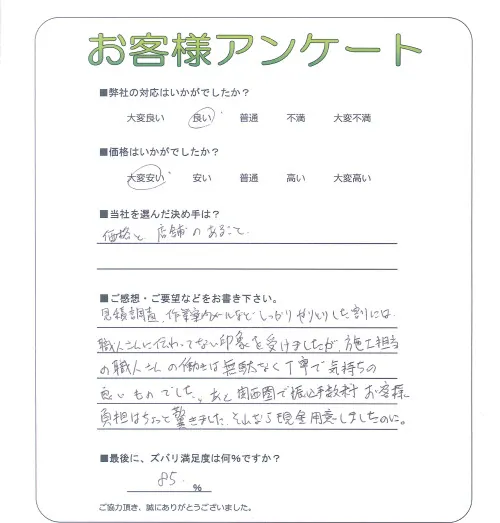 お客様アンケート
■弊社の対応はいかがでしたか？
大変良い 良い 普通 不満 大変不満
■価格はいかがでしたか？
大変安い 安い 普通 高い 大変高い
■当社を選んだ決め手は？
価格と店舗のあること
■ご感想・ご要望などをお書き下さい。
見積調査、作業案内メールなどしっかりやりとりした割には
職人さんに伝わってない印象を受けましたが、施工担当
の職人さんの働きは無駄なく丁寧で気持ちの
良いものでした。あと関西圏で振込手数料お客様
負担はちょっと驚きました。そんなら現金用意しましたのに。
■最後に、ズバリ満足度は何％ですか？
85 %
ご協力頂き、誠にありがとうございました。